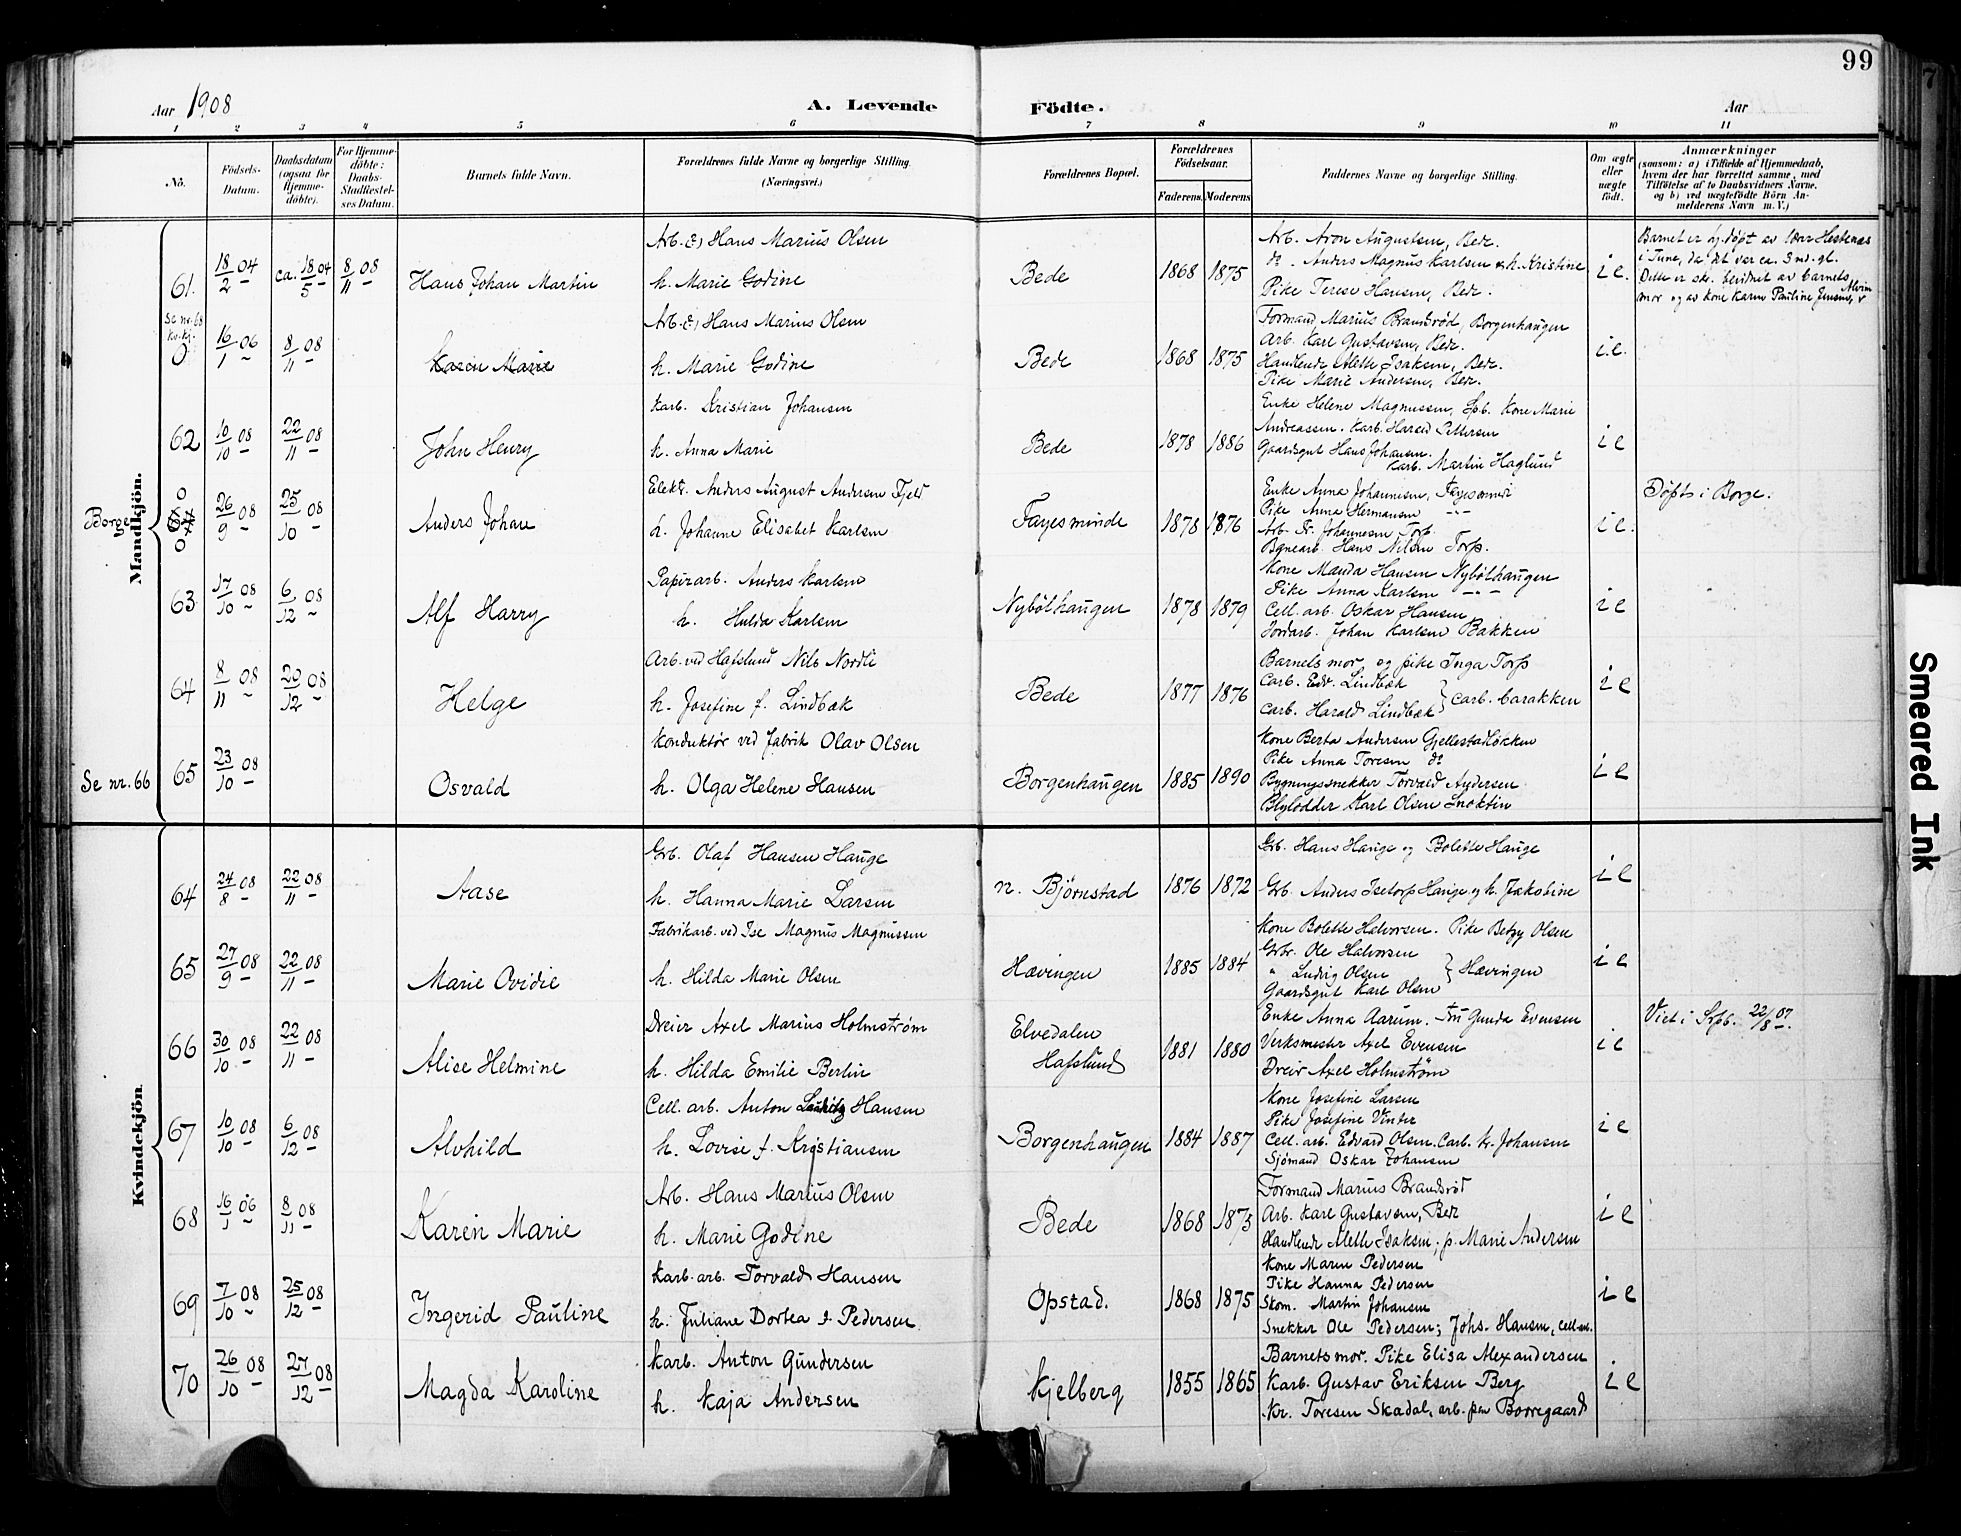 99
Aar 1908
A. Levende Födte.
Aar
1 2 3 4 5 6 7 8 9 10 11
No.
Födsels-Datum.
Daabsdatum (ogsaa for Hjemme-döbte).
For Hjemme-döbte: Daabs-Stadfæstel-ses Datum.
Barnets fulde Navn.
Forældrenes fulde Navne og borgerlige Stilling.
(Næringsvei.)
Forældrenes Bopæl.
Forældrenes Födselsaar.
Faderens. Moderens
Faddernes Navne og borgerlige Stilling.
Om ægte eller uægte födt.
Anmærkninger
(saasom: a) i Tilfælde af Hjemmedaab, hvem der har forrettet samme, med Tilföielse af to Daabsvidners Navne, og b) ved uægtefödte Börn An-melderens Navn m. V.)
Mandkjön.
61. 18/2 04 ca. 18/5 04 8/11 08 Hans Johan Martin
Arb. Hans Marius Olsen
h. Marie Godine
Bede 1868 1875
Arb. Aron Augustsen, Bede.
do. Anders Magnus Karlsen & h. Kristine
Pike Terese Hansen, Bede.
i e.
Barnet er hj.døpt av lær Hestenes
i June, da det var ca. 3 md. gl.
Dette er ske. bevidnet av barnets
mor og av kone Karen Pauline Jensen,
Se nr. 68 kv.kj.
0 16/1 06 8/11 08 Karen Marie
Arb. Hans Marius Olsen
h. Marie Godine
Bede 1868 1875
Formand Marius Brandsrød, Borgenhaugen
Arb. Karl Gustavsen, Bede.
Handlende Alette Isaksen, Bede.
Pike Marie Andersen, Bede.
i.e.
62 10/10 08 22/11 08 John Henry
Karb. Kristian Johansen
h. Anna Marie
Bede 1878 1886
Enke Helene Magnussen, Spb. Kone Marie
Andreassen. Karb. Harald Pettersen
Gaardsgut Hans Johansen.
Karb. Martin Haglund
i e
Borge 0 0 26/9 08 25/10 08 Anders Johan
Elektr. Anders August Andersen Fjeld
h. Johanne Elisabet Karlsen
Fagesminde 1878 1876
Enke Anna Johannesen, Fagesminde
Pike Anna Hermansen -"-
Arb. Kr. Johannesen Torp.
Banearb. Hans Nilsen Torp.
i e.
Døpt i Borge.
63 17/10 08 6/12 08 Alf Harry
Papirarb. Anders Karlsen
h. Hulda Karlsen
Nybølhaugen 1878 1879
Kone Manda Hansen Nybølhaugen
Pike Anna Karlsen -"-
Cell. arb. Oskar Hansen
Jordarb. Johan Karlsen Bakken
i e
64 8/11 08 20/12 08 Helge
Arb. ved Hafslund Nils Nordli
h. Josefine f. Lindbæk
Bede 1877 1876
Barnets mor, og pike Inga Torp
Carb. Edv. Lindbæk
Carb. Harald Lindbæk } Carb. barakken
i e
Se nr. 66 65 23/10 08 Osvald
Konduktør ved fabrik Olav Olsen
h. Olga Helene Hansen
Borgenhaugen 1885 1890
Kone Berta Andersen Gjellestadløkken
Pike Anna Toresen do
Bygningssnekker Torvald Andersen
Blylodder Karl Olsen
i e
Kvindekjön.
64 24/8 08 22/11 08 Aase
Grb. Olaf Hansen Hauge
h. Hanna Marie Larsen
n. Bjørnstad 1876 1872
Grb. Hans Hauge og Bolette Hauge
Grb. Anders Isetorp Hauge og h. Jakobine
i e
65 27/9 08 22/11 08 Marie Ovidie
Fabrikarb. ved Ise Magnus Magnussen
h. Hilda Marie Olsen
Hævingen 1885 1884
Kone Bolette Halvorsen. Pike Betzy Olsen
Grbr. Ole Halvorsen
" Ludvig Olsen } Hævingen
Gaardsgut Karl Olsen
i e
66 30/10 08 22/11 08 Alise Helmine
Dreier Axel Marius Holmstrøm
h. Hilda Emilie Berlin
Elvedalen
Hafslund 1881 1880
Enke Anna Aarum. Fru Gunda Evensen
Verksmester Axel Evensen
Dreir Axel Holmstrøm
i e
Viet i Srpb. 22/8 07.
67 10/10 08 6/12 08 Alvhild
Cell. arb. Anton Lauritz Hansen
h. Lovise f. Kristiansen
Borgenhaugen 1884 1887
Kone Josefine Larsen
Pike Josefine Vinter
Cell. arb. Edvard Olsen. Carb. Kr. Johansen
Sjömand Oskar Johansen
i e
68 16/1 06 8/11 08 Karen Marie
Arb. Hans Marius Olsen
h. Marie Godine
Bede 1868 1875
Formand Marius Brandsrød
Arb. Karl Gustavsen, Bede
Handlende Alette Isaksen, p. Marie Andersen
i e
69 7/10 08 25/12 08 Ingerid Pauline
Karb. arb. Torvald Hansen
h. Juliane Dortea f. Pedersen
Opstad. 1868 1875
Kone Maren Pedersen
Pike Hanna Pedersen
Skom. Martin Johansen
Snekker Ole Pedersen; Johs. Hansen, cell-arb.
i e
70 26/10 08 27/12 08 Magda Karoline
Karb. Anton Gundersen
h. Kaja Andersen
Kjelberg 1855 1865
Barnets mor. Pike Elisa Alexandersen
Karb. Gustav Eriksen Berg
Kr. Toresen Skadal, arb. paa Borregaard
i e
Smeared Ink